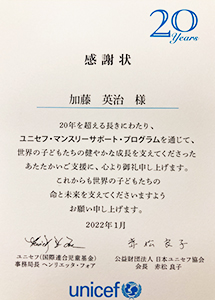 20
Years
感謝状
加藤 英治 様
20年を超える長きにわたり、
ユニセフ・マンスリーサポート・プログラムを通じて、
世界の子どもたちの健やかな成長を支えてくださった
あたたかいご支援に、心より御礼申し上げます。
これからも世界の子どもたちの
命と未来を支えてくださいますよう
お願い申し上げます。
2022年1月
赤松良子
ユニセフ(国際連合児童基金)
事務局長 ヘンリエッタ・フォア
公益財団法人 日本ユニセフ協会
会長 赤松 良子
unicef